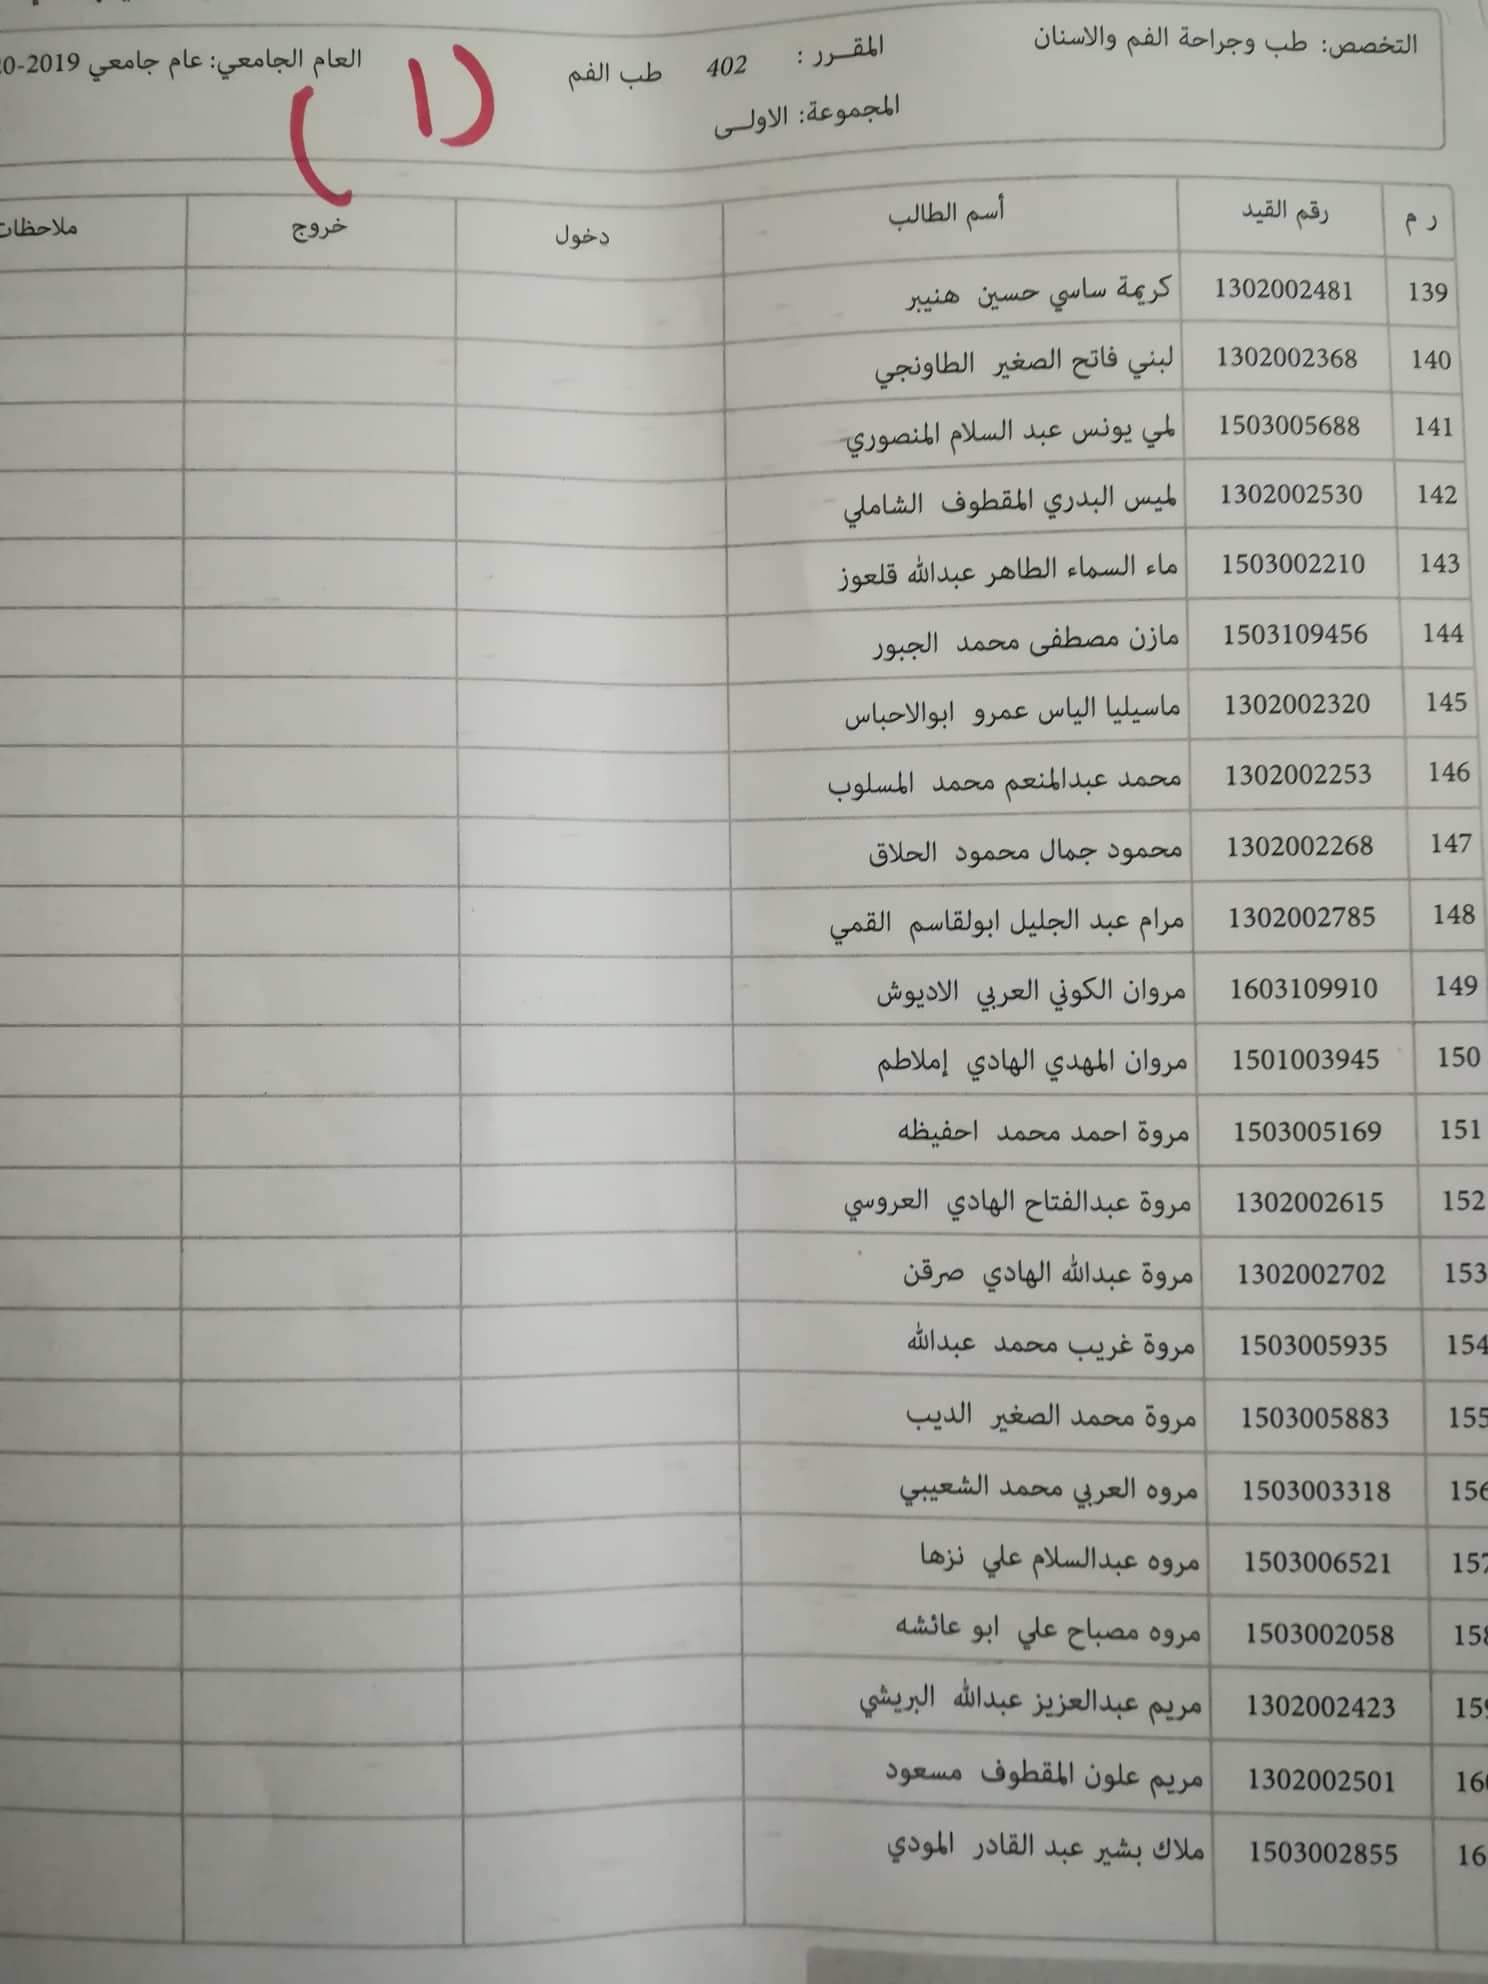 التخصص: طب وجراحة الفم والاسنان
المقرر : 402 طب الفم
العام الجامعي: عام جامعي 2019-20
المجموعة: الاولى
(1)
ر م رقم القيد أسم الطالب دخول خروج ملاحظات
139 1302002481 كريمة ساسي حسين هنيبر
140 1302002368 لبني فاتح الصغير الطاونجي
141 1503005688 لمي يونس عبد السلام المنصوري
142 1302002530 لميس البدري المقطوف الشاملي
143 1503002210 ماء السماء الطاهر عبدالله قلعوز
144 1503109456 مازن مصطفى محمد الجبور
145 1302002320 ماسيليا الياس عمرو ابوالاحباس
146 1302002253 محمد عبدالمنعم محمد المسلوب
147 1302002268 محمود جمال محمود الحلاق
148 1302002785 مرام عبد الجليل ابولقاسم القمي
149 1603109910 مروان الكوني العربي الاديوش
150 1501003945 مروان المهدي الهادي إملاطم
151 1503005169 مروة احمد محمد احفيظه
152 1302002615 مروة عبدالفتاح الهادي العروسي
153 1302002702 مروة عبدالله الهادي صرقن
154 1503005935 مروة غريب محمد عبدالله
155 1503005883 مروة محمد الصغير الديب
156 1503003318 مروه العربي محمد الشعيبي
157 1503006521 مروه عبدالسلام علي نزها
158 1503002058 مروه مصباح علي ابو عائشه
159 1302002423 مريم عبدالعزيز عبدالله البريشي
160 1302002501 مريم علون المقطوف مسعود
16 1503002855 ملاك بشير عبد القادر المودي